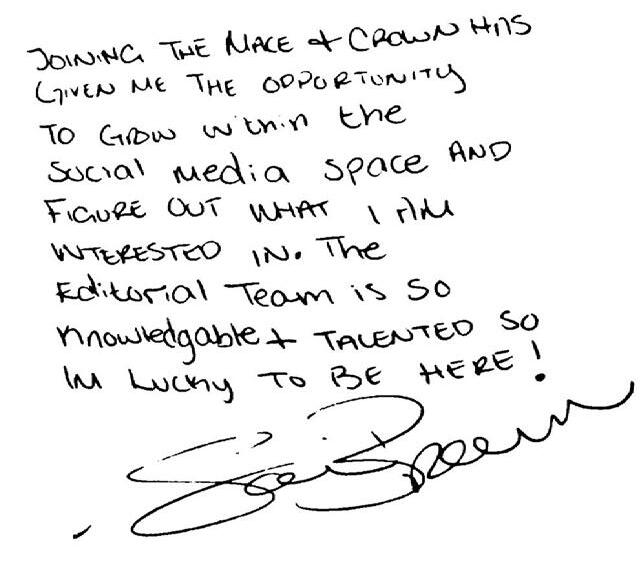 JOINING THE MACE & CROWN HAS
GIVEN ME THE OPPORTUNITY
TO GROW within the
Social media space AND
FIGURE OUT WHAT I AM
INTERESTED IN. The
Editorial Team is so
knowledgable + TALENTED SO
IM LUCKY TO BE HERE!